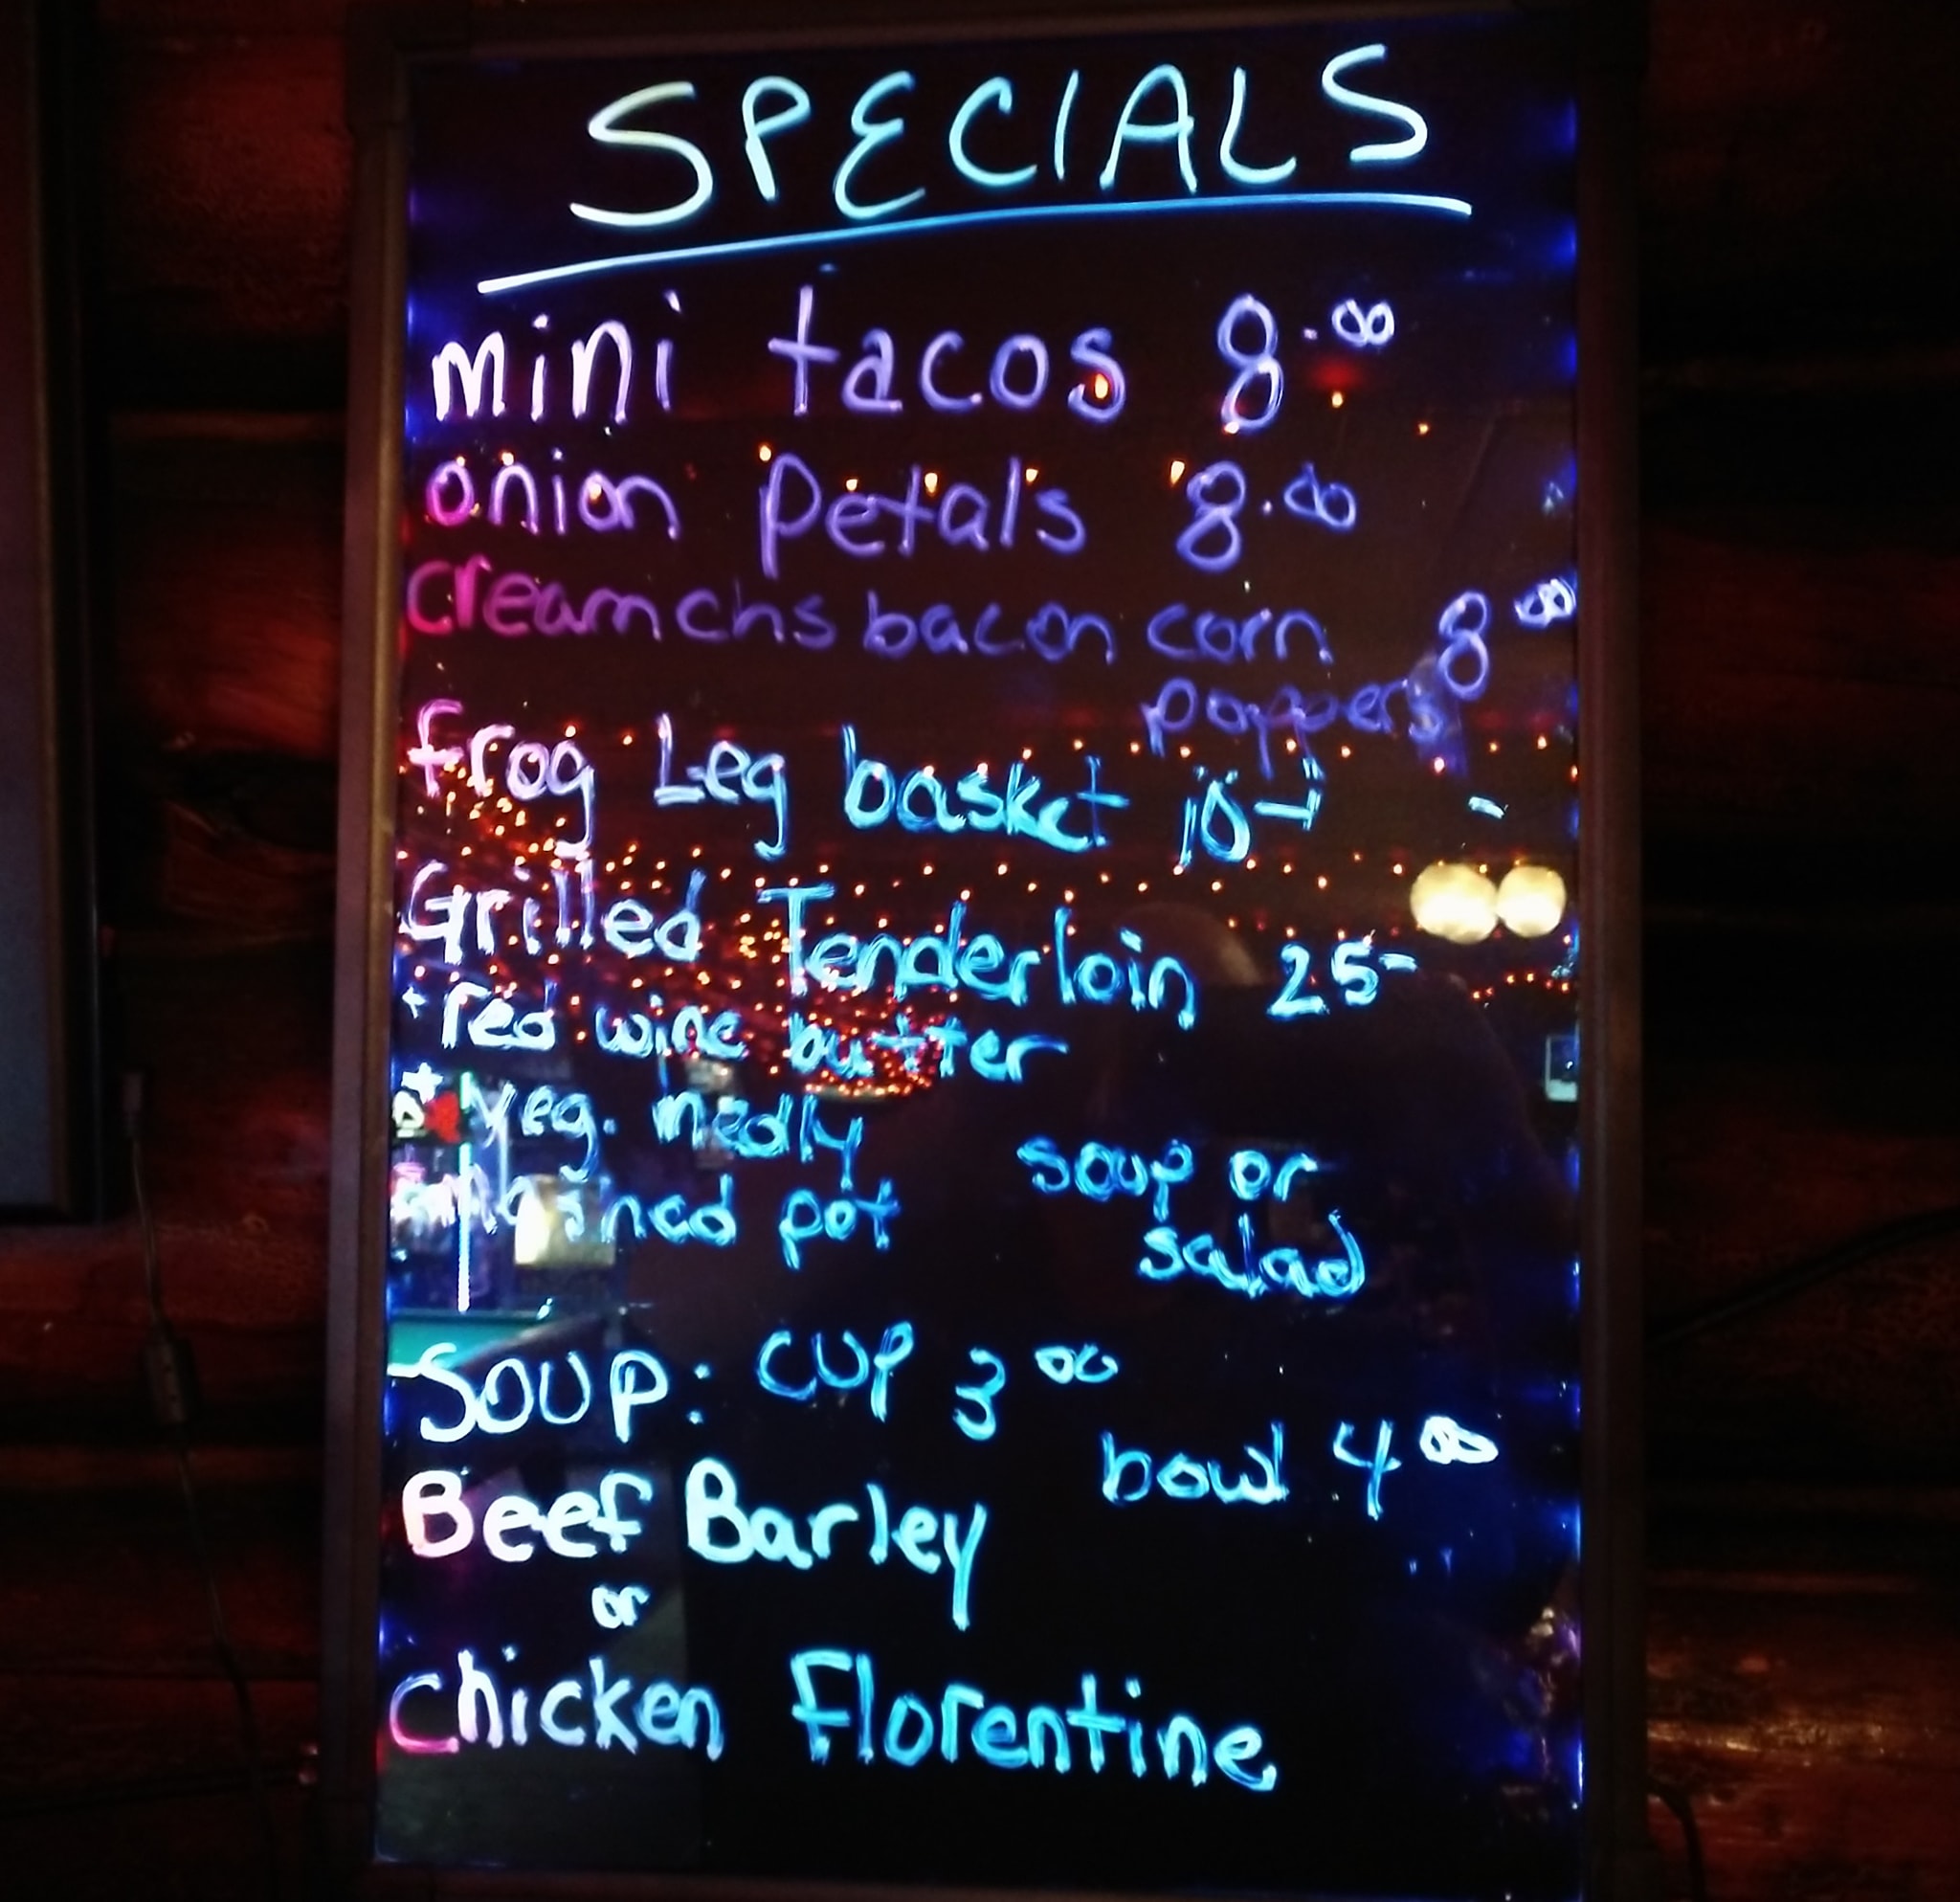 SPECIALS
mini tacos 8.00
onion petals 8.00
cream chs bacon corn 8 00
poppers
frog Leg basket
Grilled Tenderloin 25-
+ red wine butter
+ veg. medly
pot soup or
salad
SOUP: CUP 3 00
bowl 4 00
Beef Barley
or
Chicken Florentine